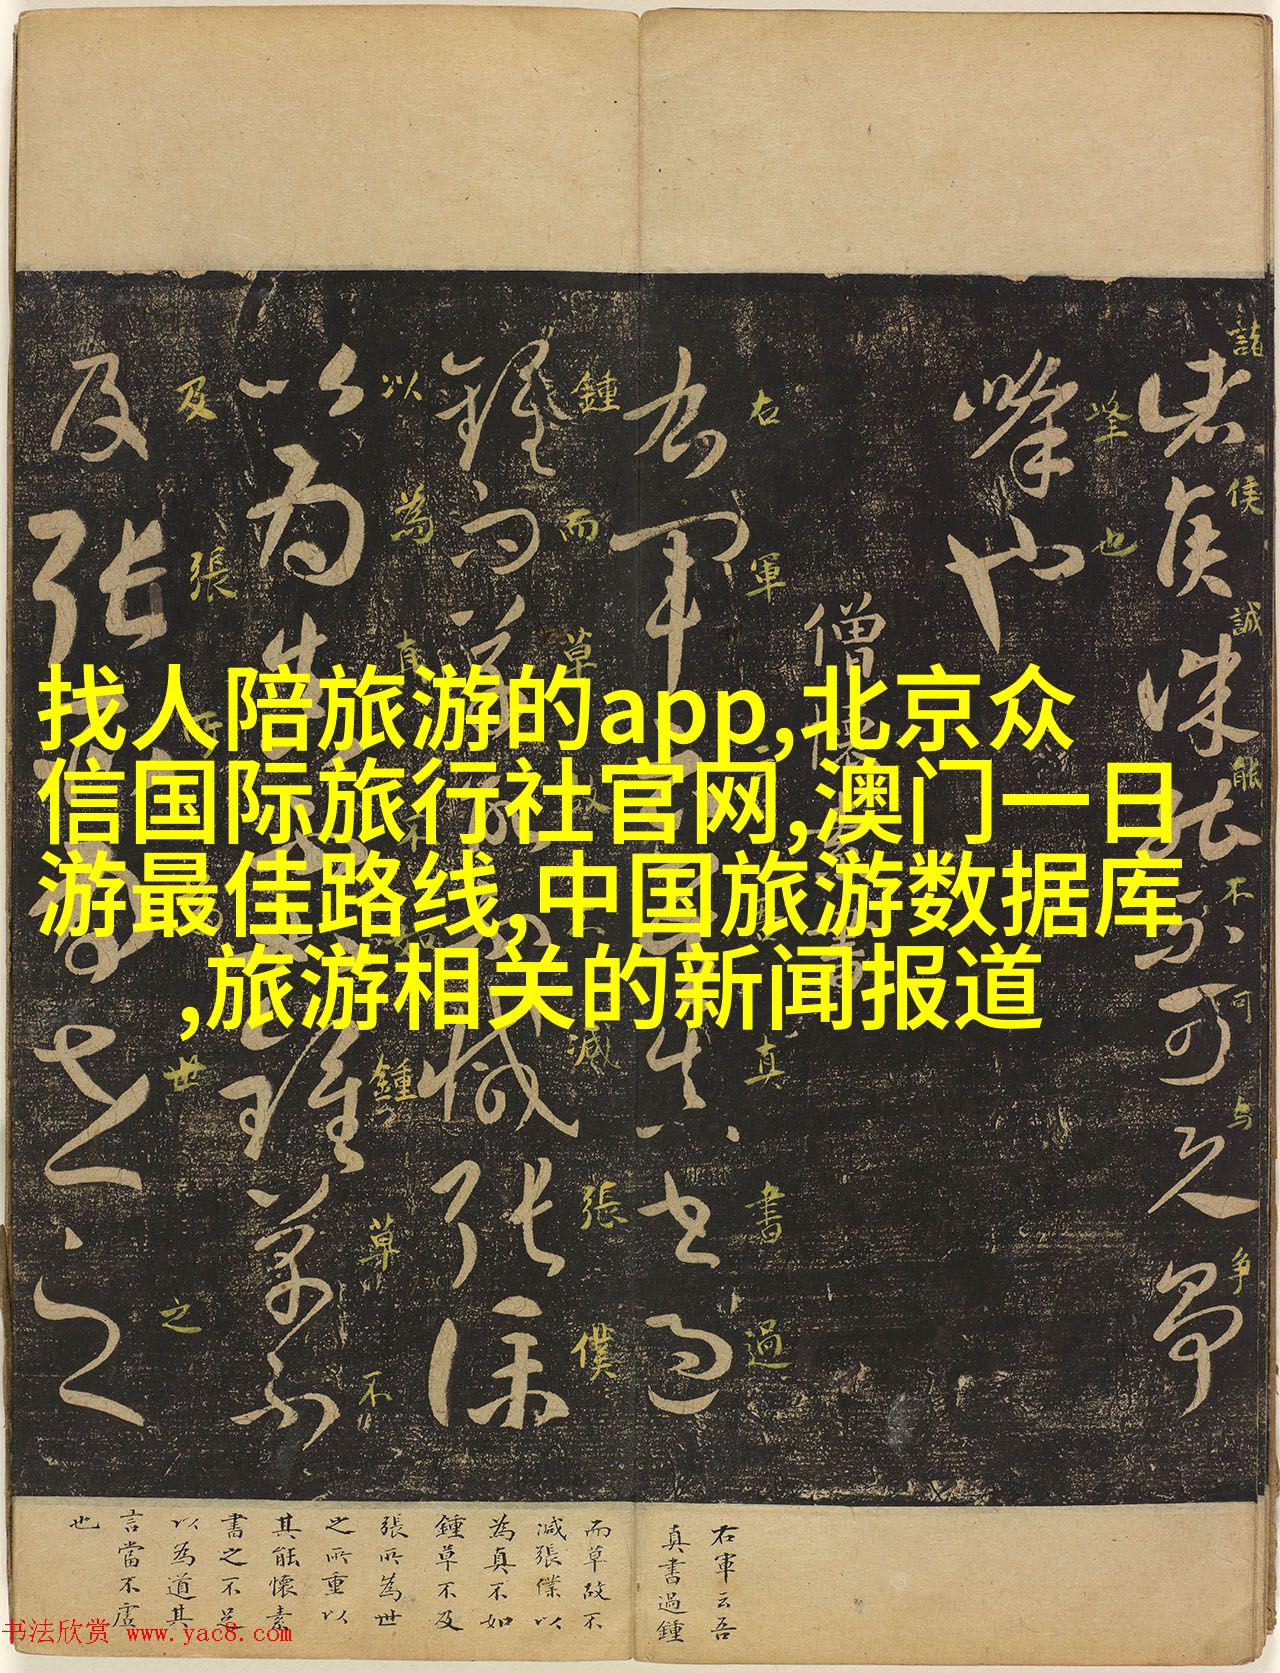 找人陪旅游的app,北京众
信国际旅行社官网,澳门一日
游最佳路线,中国旅游数据库
,旅游相关的新闻报道
諸侯誠能不可与争
峰也
僧懷素書
右軍云吾真書過
鍾而草故不減張僕
以為真不如鍾草不
及張所為世之
右軍云吾
真書過鍾
而草故不
減張僕以
為真不如
鍾草不及
張所為世
之所重以
其能懷素
書之不足
以為道其
言當不虛
也
书法欣赏 www.yac8.com